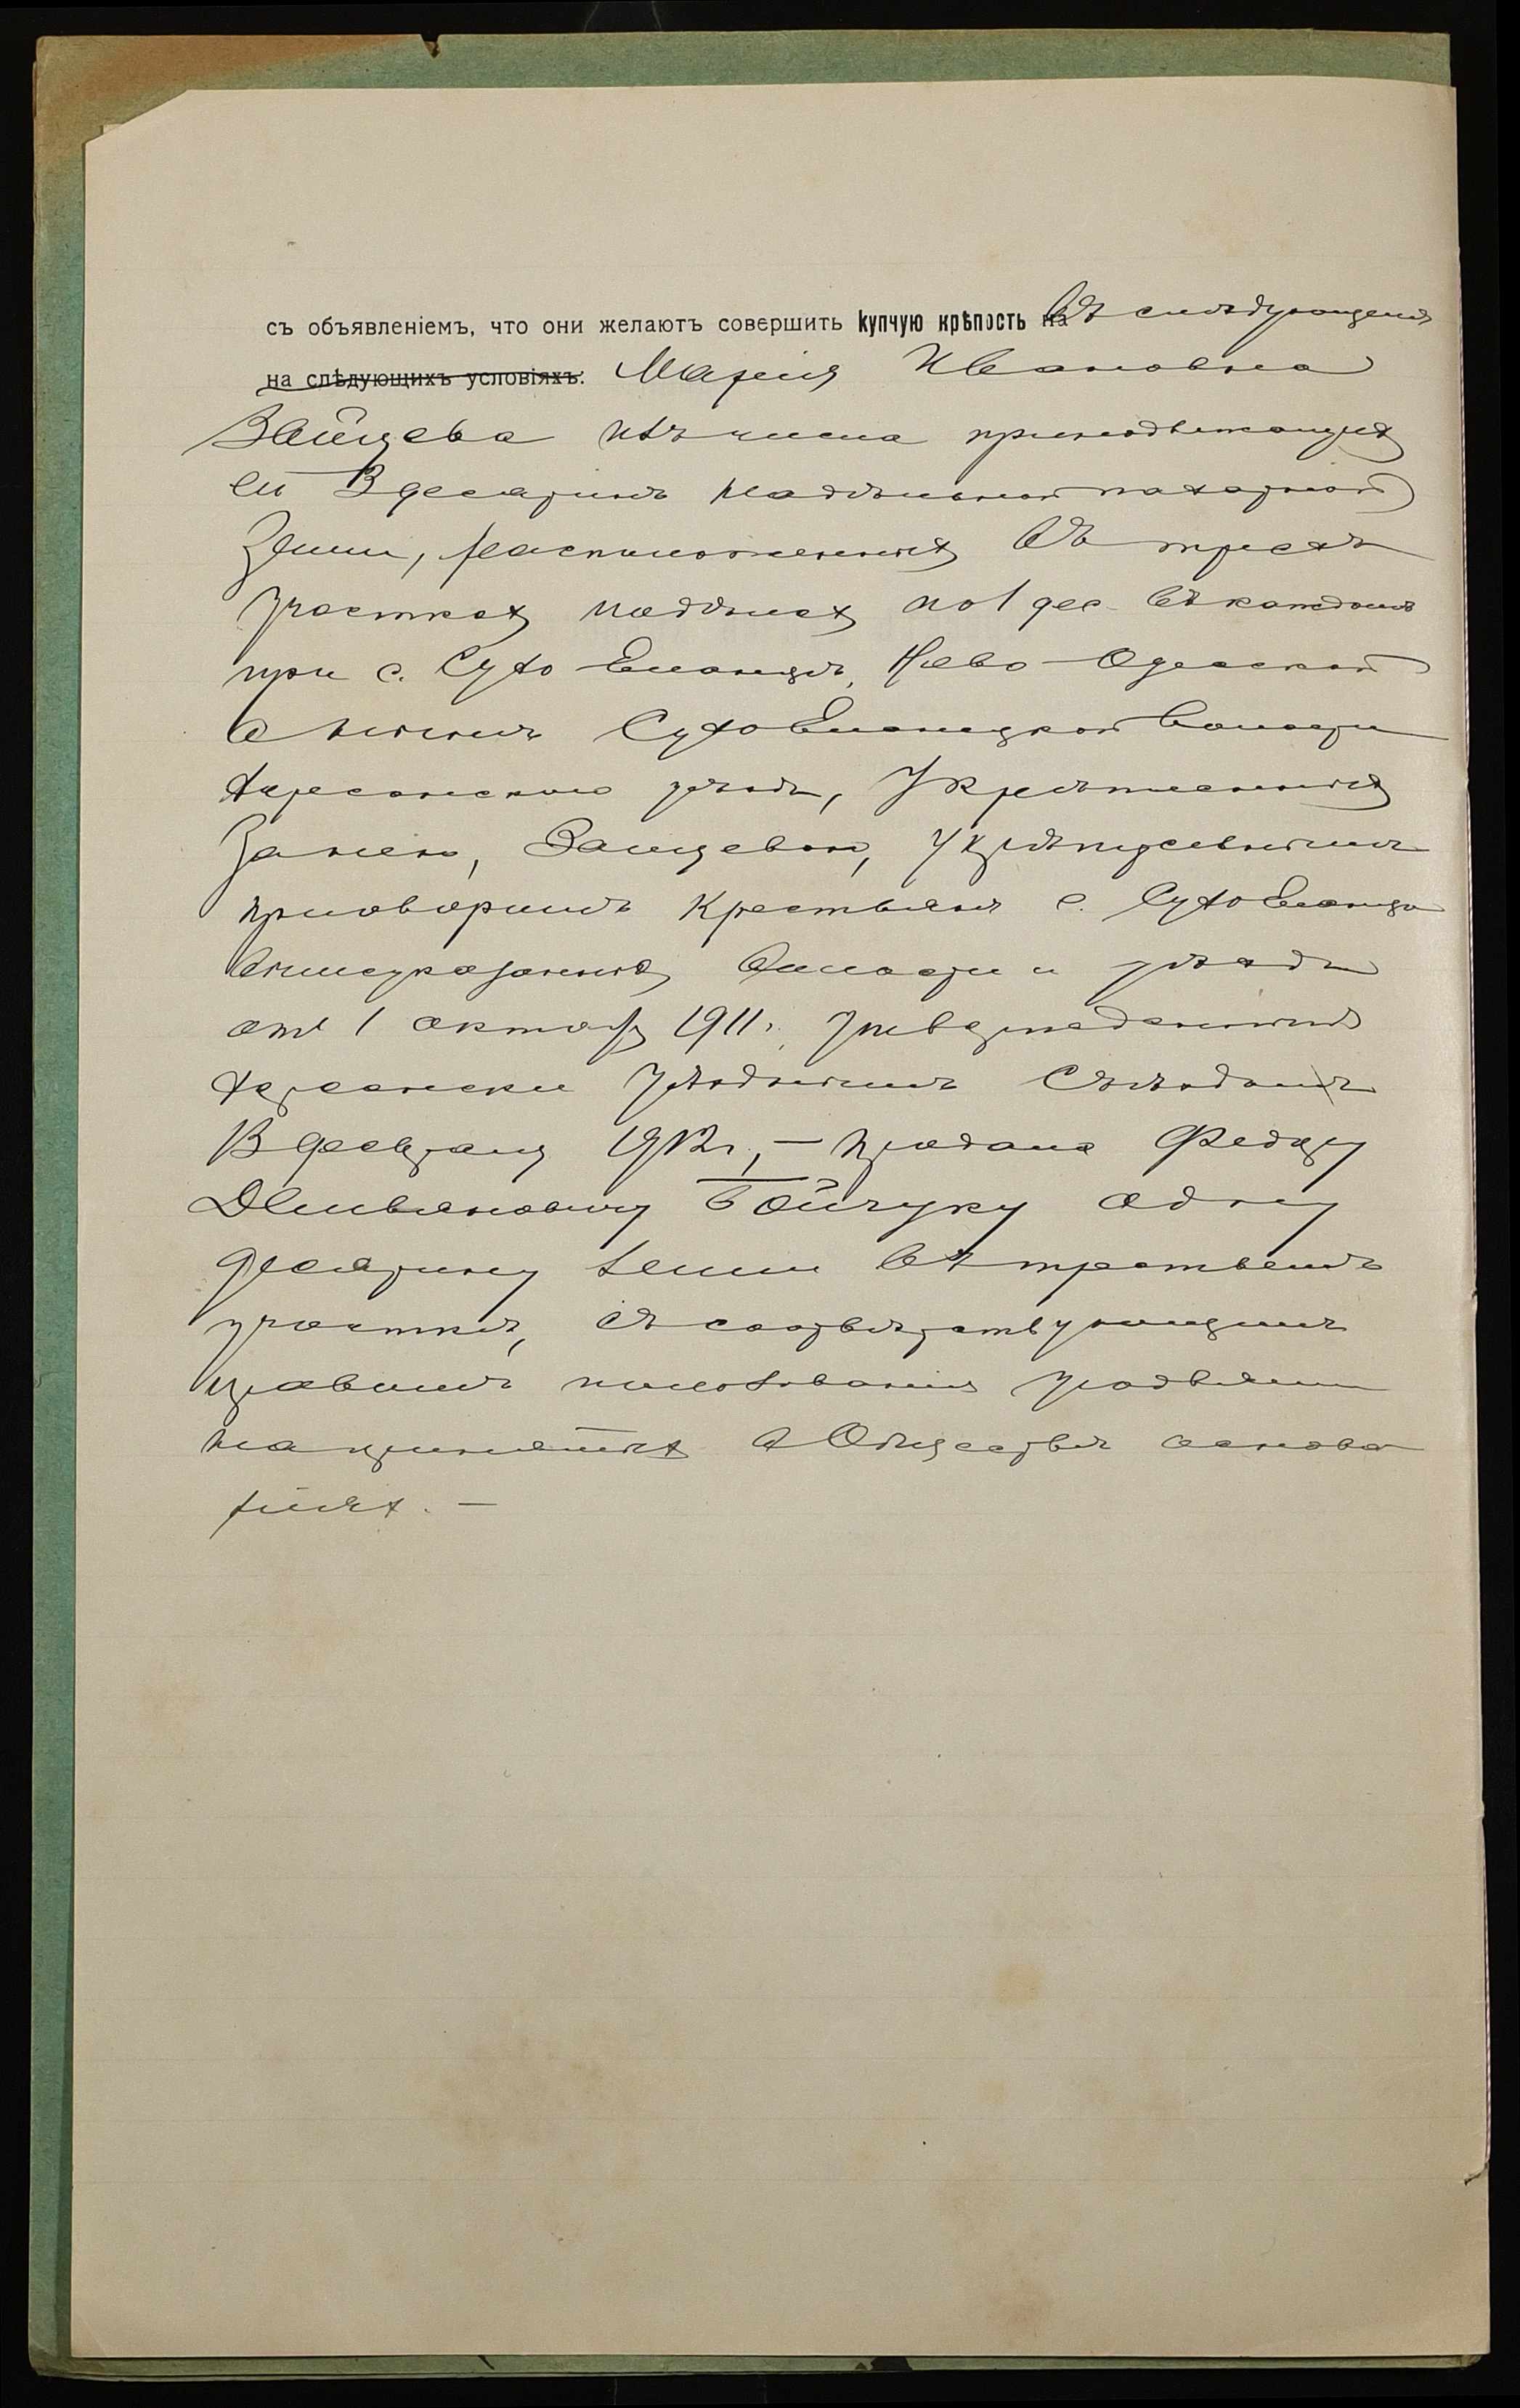 съ объявленіемъ, что они желаютъ совершить купчую крѣпость на въ слѣдующемъ
на слѣдующихъ условіяхъ: Марія Ивановна
Зайцева изъ числа принадлежащих
ей 3 десятинъ надѣльной пахарной
земли, расположенных въ трехъ
участках надѣлах по 1 дес. въ каждомъ
при с. Сухо Еланцѣ, Ново-Одесской
Сухо Еланецкой волости
Херсонскаго уѣзда, укрѣпленных
за нею, Зайцевою, укрѣпительнымъ
приговоромъ крестьянъ с. Сухо Еланца
вышеуказанной волости и уѣзда
отъ 1 октября 1911 г. утвержденнымъ
Херсонски Уѣзднымъ Съѣздомъ
13 февраля 1912 г., — продала Федору
Демьяновичу Бойчуку одну
десятину земли въ третьемъ
участкѣ, съ соотвѣтствующимъ
правомъ пользованія
на принятых в Обществѣ основа
ніяхъ. —